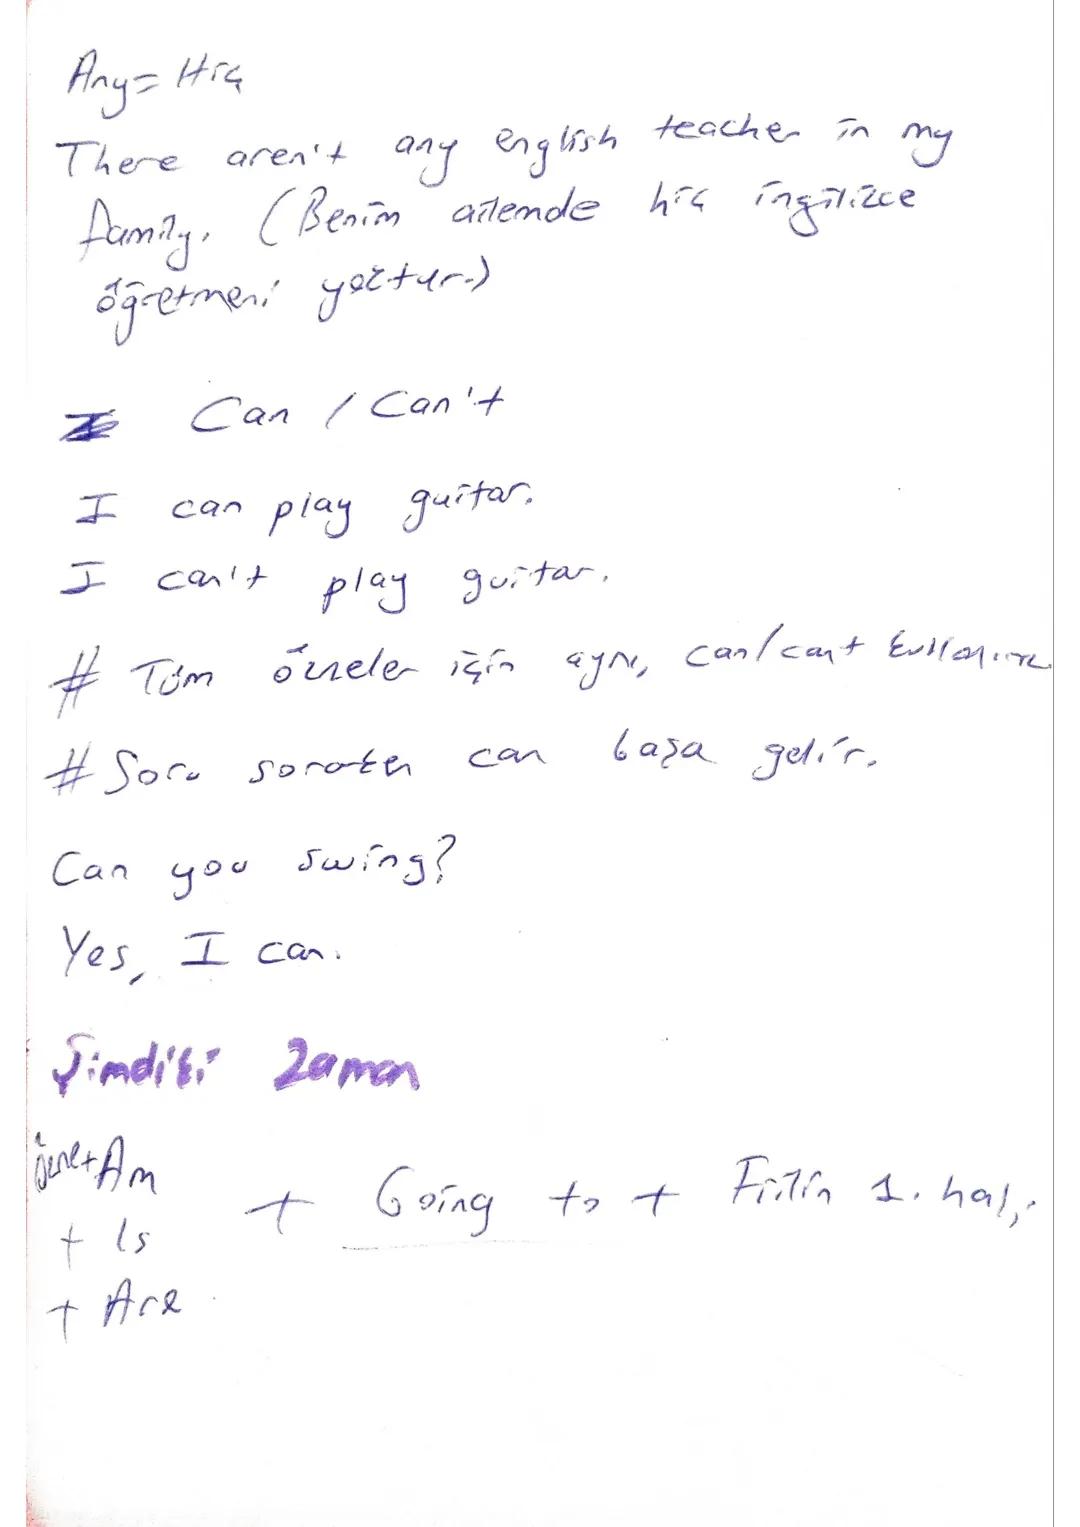 Any= Hiç
There aren't any english teacher in my
family. (Benim ailemde hiç ingilizce
öğretmeni yoktur.)
Can / Can't
I can play guitar.
I can't play guitar.
# Tüm özneler için aynı, can/cant kullanılır
# Soru sorarken can başa gelir.
Can you swing?
Yes, I can.
Şimdiki Zaman
Özne+Am
+ Going to + Fiilin 1. hali
+ Is
+ Are